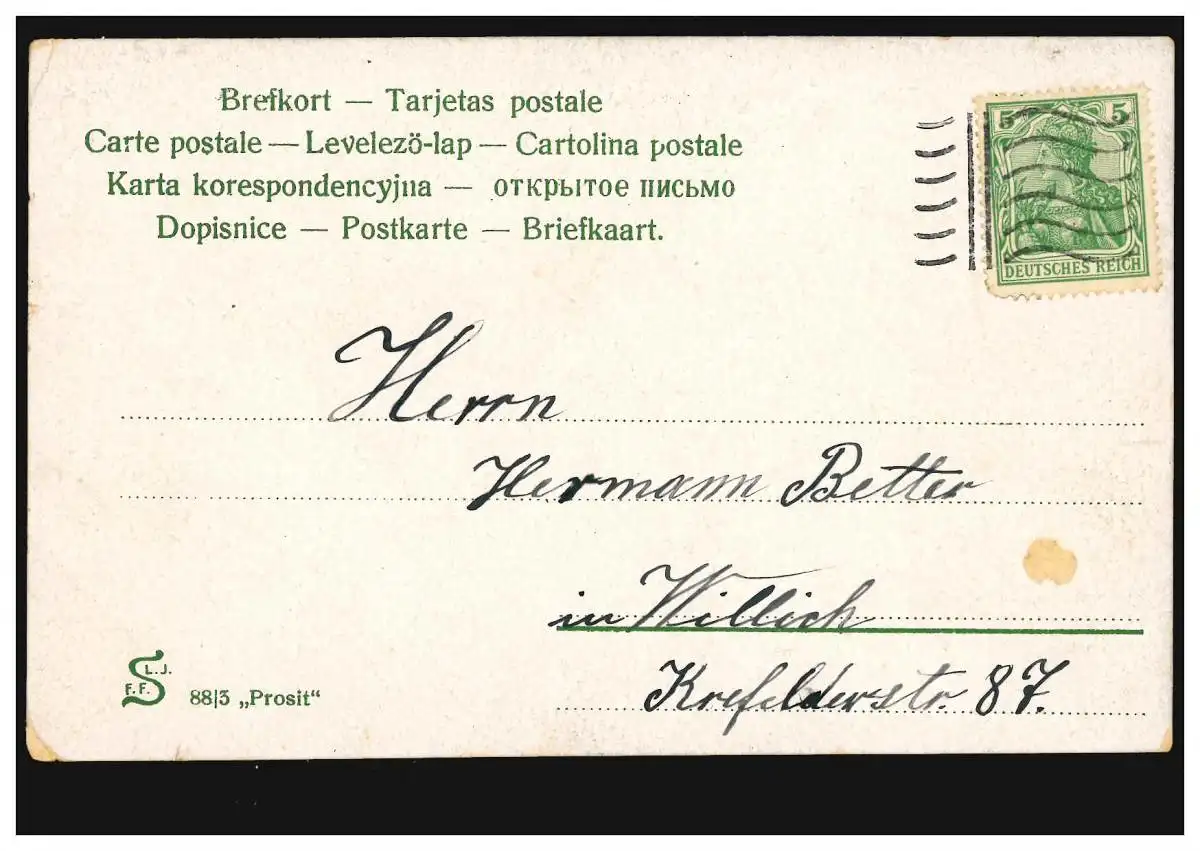 Brefkort — Tarjetas postale
Carte postale — Levelezö-lap — Cartolina postale
Karta korespondencyjna — открытое письмо
Dopisnice — Postkarte — Briefkaart.
5 5
DEUTSCHES REICH
Herrn
Hermann Better
in Willich
Krefelderstr. 87.
L.J.
F.F.
88|3 „Prosit“